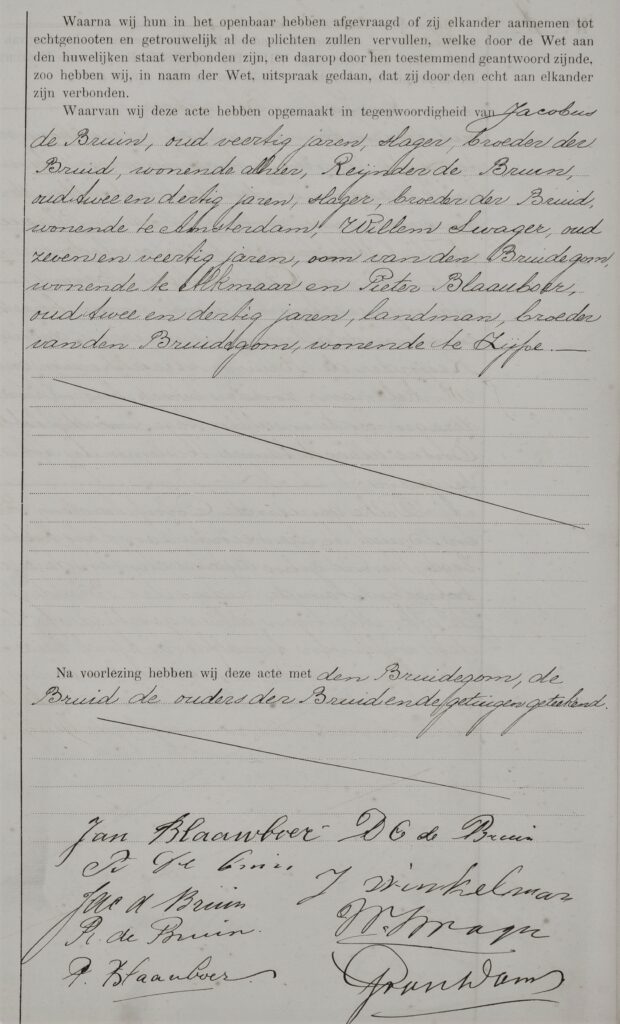 Waarna wij hun in het openbaar hebben afgevraagd of zij elkander aannemen tot
echtgenooten en getrouwelijk al de plichten zullen vervullen, welke door de Wet aan
den huwelijken staat verbonden zijn, en daarop door hen toestemmend geantwoord zijnde,
zoo hebben wij, in naam der Wet, uitspraak gedaan, dat zij door den echt aan elkander
zijn verbonden.
Waarvan wij deze acte hebben opgemaakt in tegenwoordigheid van Jacobus
de Bruin, oud veertig jaren, slager, broeder der
Bruid, wonende alhier, Reijnder de Bruin,
oud twee en dertig jaren, slager, broeder der Bruid,
wonende te Amsterdam, Willem Swager, oud
zeven en veertig jaren, oom van den Bruidegom,
wonende te Alkmaar en Pieter Blaauboer,
oud twee en dertig jaren, landman, broeder
van den Bruidegom, wonende te Zijpe.—
Na voorlezing hebben wij deze acte met den Bruidegom, de
Bruid de ouders der Bruid en de getuigen geteekend.
Jan Blaauwboer D C de Bruin
de Bruin
J Winkelman
Jac d Bruin
W. Swager
R. de Bruin.
P. Blaauboer